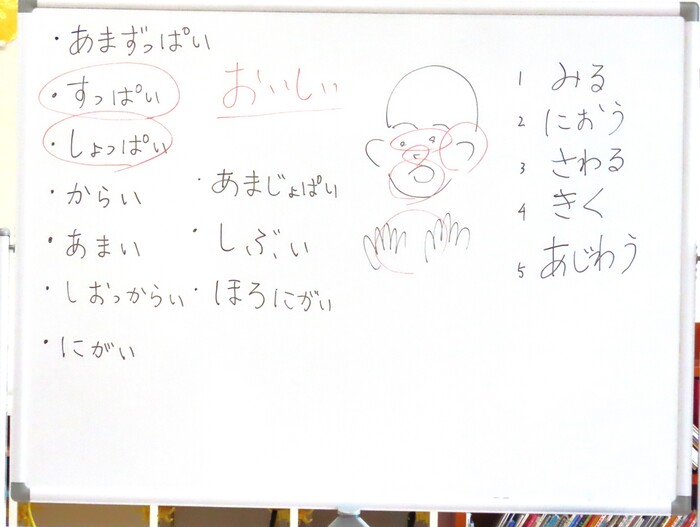 ・あまずっぱい
・すっぱい
・しょっぱい
・からい
・あまい
・しおっからい
・にがい
おいしい
・あまじょぱい
・しぶい
・ほろにがい
1 みる
2 におう
3 さわる
4 きく
5 あじわう